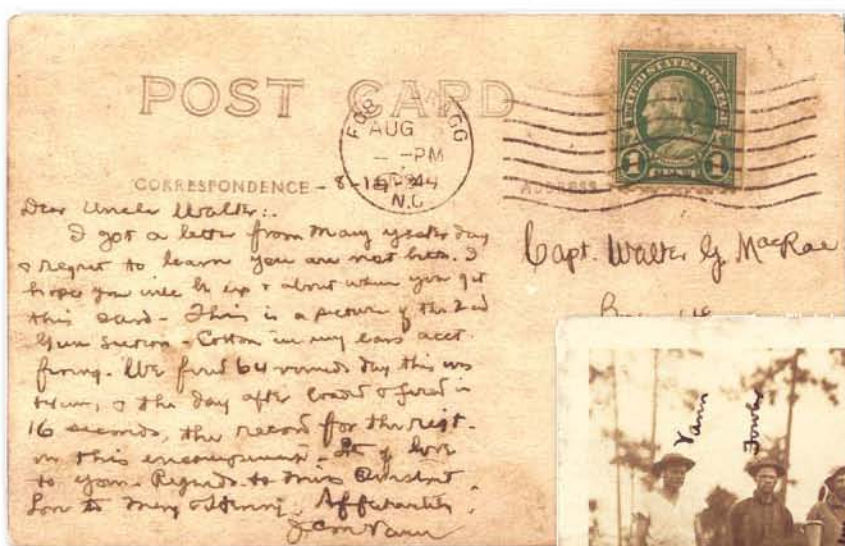 POST CARD
FOR BRAGG
AUG
-PM
N.C
UNITED STATES POSTAGE
1 CENT 1
CORRESPONDENCE - 8-14-24
ADDRESS
Dear Uncle Walter:.
I got a letter from Mary yesterday
& regret to learn you are not better. I
hope you will be up & about when you get
this card - This is a picture of the 2nd
Gun Section - Cotton in my ears acct
firing. We fired 64 rounds day this was
& the day after
16 seconds, the record for the regt.
on this encampment - love
to you. Regards to Miss
Love to Mary & Henry. Affectionately,
Vann
Capt. Walter G. MacRae
Vann
Fowler